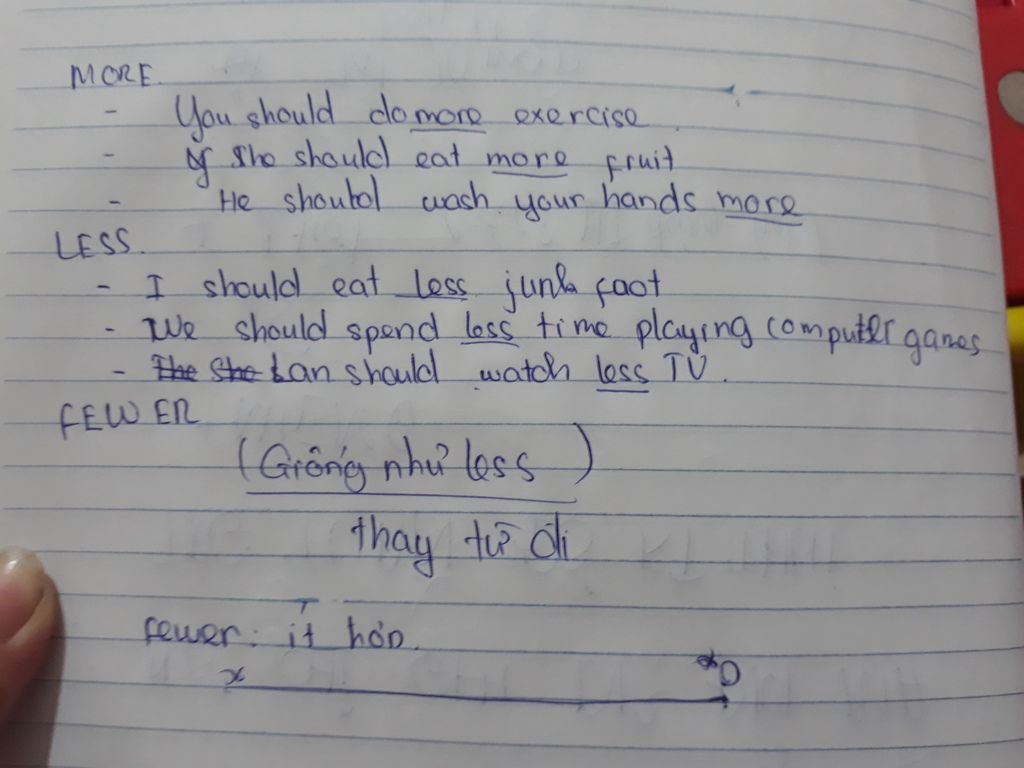 MORE.
- You should do more exercise.
- She should eat more fruit
- He should wash your hands more
LESS.
- I should eat less junk foot
- We should spend less time playing computer games
- The She Lan should watch less TV.
FEWER
(Giống như less)
thay từ đi
fewer: ít hơn.